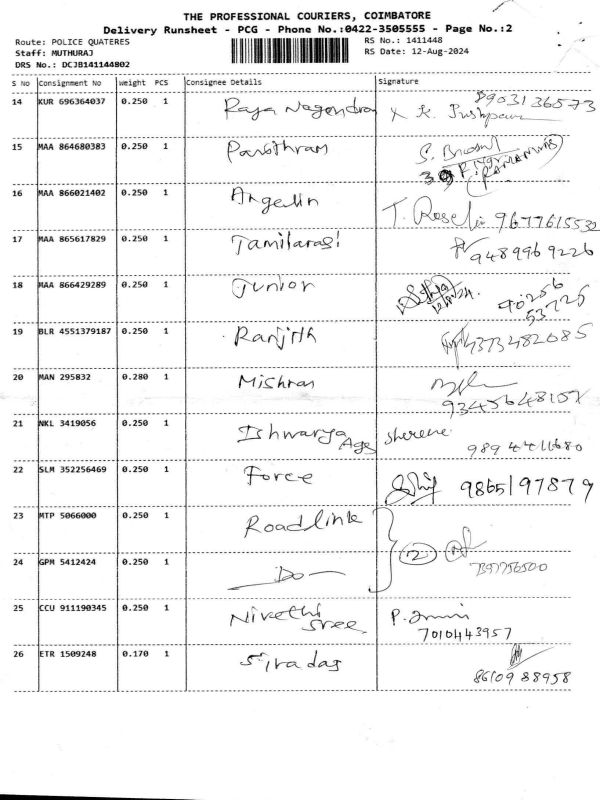 THE PROFESSIONAL COURIERS, COIMBATORE
Delivery Runsheet - PCG - Phone No.:0422-3505555 - Page No.:2
Route: POLICE QUATERES
Staff: MUTHURAJ
DRS No.: DCJB141144802
RS No.: 1411448
RS Date: 12-Aug-2024
S No Consignment No Weight PCS Consignee Details Signature
14 KUR 696364037 0.250 1 Raja Nagendran 8903136573
15 MAA 864680383 0.250 1
16 MAA 866021402 0.250 1 Angelin T. Roseli 9677615530
17 MAA 865617829 0.250 1 Tamilarasi 9489969226
18 MAA 866429289 0.250 1 Junior 90256 53725
19 BLR 4551379187 0.250 1 Ranjith
20 MAN 295832 0.280 1 Mishran
21 NKL 3419056 0.250 1 Ishwarya Ags Sherene 9894411680
22 SLM 352256469 0.250 1 Force 9865197879
23 MTP 5066000 0.250 1 Roadlink
24 GPM 5412424 0.250 1 —Do— 2
25 CCU 911190345 0.250 1 Nivethi Sree P. 7010443957
26 ETR 1509248 0.170 1 Sivadas 8610988958